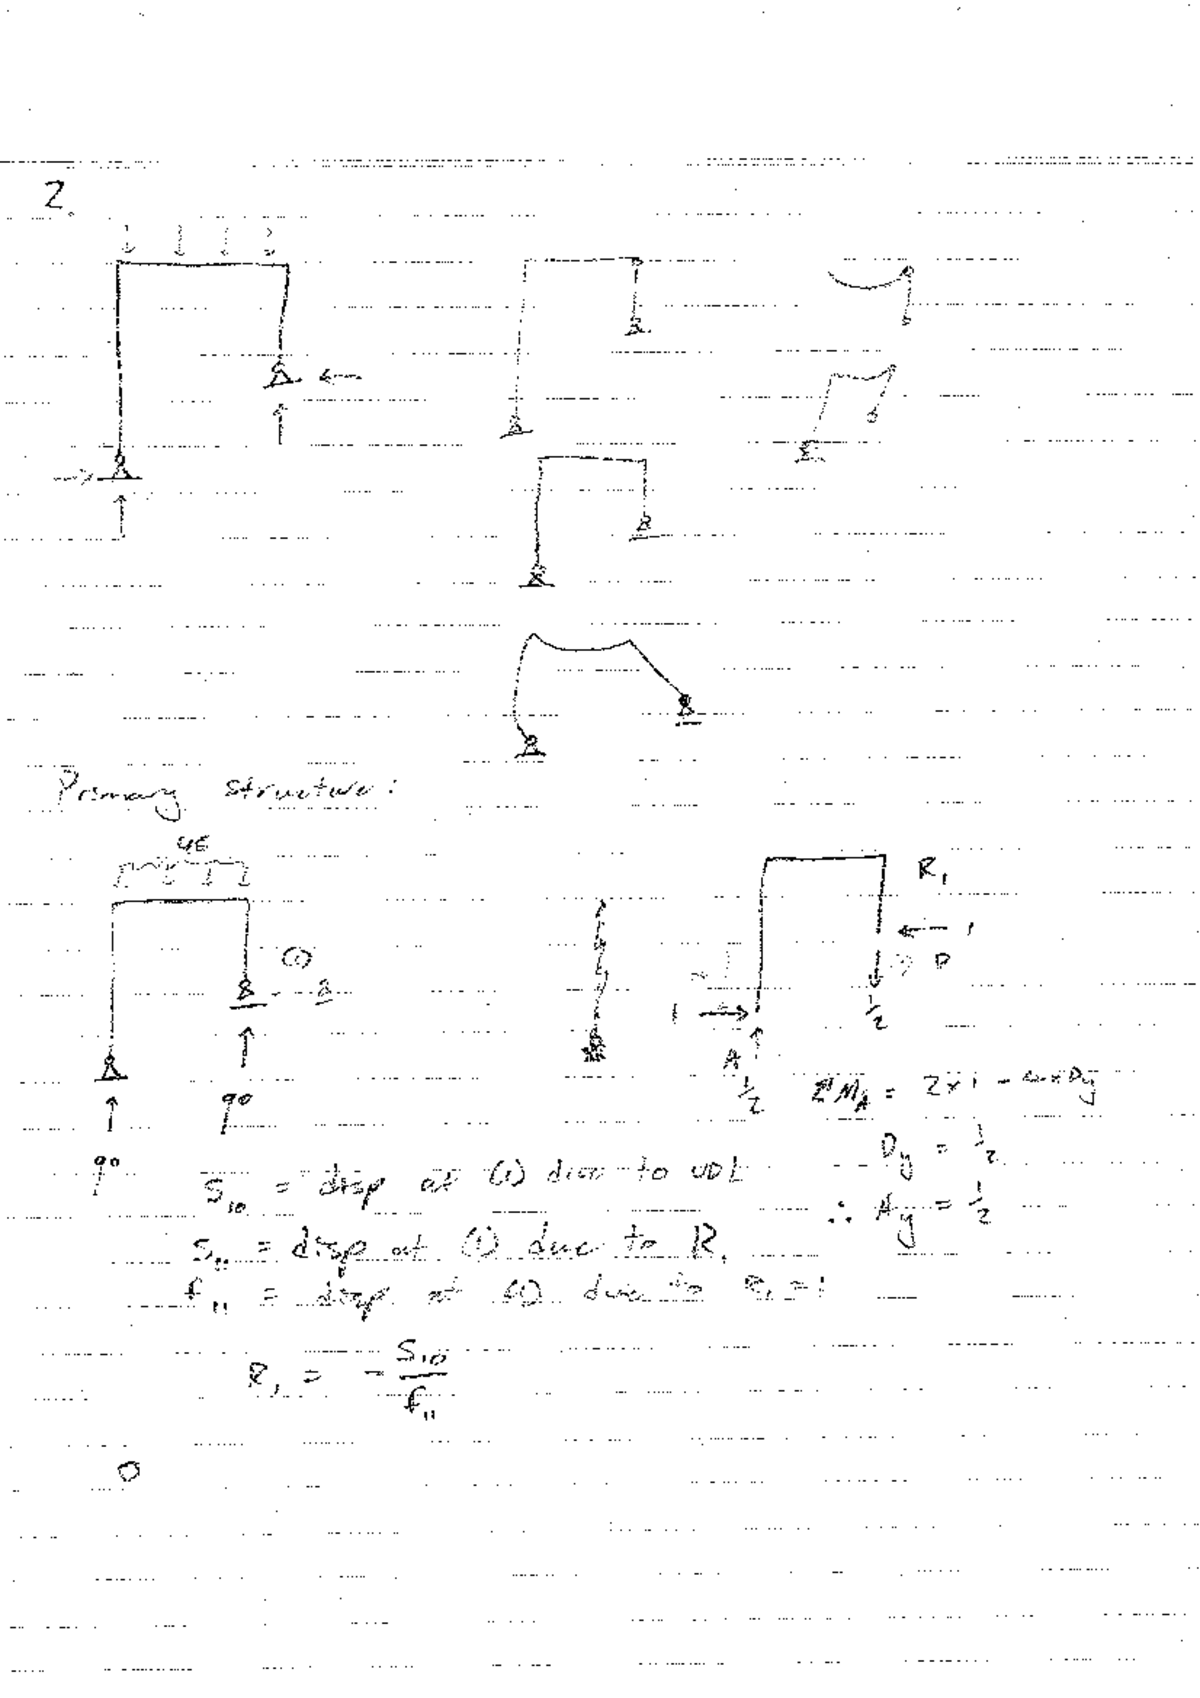 2.
Primary structure:
45
(1)
90
90
R₁
1
D
1
½
A
½
ΣM_A = 2×1 - 4×Dy
Dy = ½
∴ Ay = ½
S₁₀ = disp at (1) due to UDL
S₁₁ = disp at (1) due to R₁
f₁₁ = disp at (1) due to R₁ = 1
R₁ = - S₁₀/f₁₁